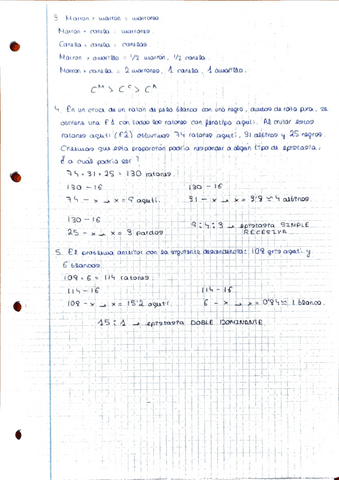 3. Marrón × marrón = marrones
Marrón × canela = marrones
Canela × canela = canelas
Marrón × amarillo = 1/2 marrón, 1/2 canela
Marrón × canela = 2 marrones, 1 canela, 1 amarillo.
Cᴹ > Cᶜ > Cᴬ
4. En un cruce de un ratón de pelo blanco con uno negro, ambos de raza pura, se
obtiene una F1 con todos los ratones con fenotipo agutí. Al cruzar estos
ratones agutí (F2) obtuvimos 74 ratones agutí, 31 albinos y 25 negros.
Creemos que esta proporción podría responder a algún tipo de epistasia.
¿a cuál podría ser?
74 + 31 + 25 = 130 ratones.
130 - 16
74 - x → x = 9 agutí.
130 - 16
31 - x → x = 3'8 ≈ 4 albinos.
130 - 16
25 - x → x = 3 pardos.
9 : 4 : 3 → epistasia SIMPLE
RECESIVA.
5. El problema anterior con la siguiente descendencia: 108 gris agutí y
6 blancos.
108 + 6 = 114 ratones.
114 - 16
108 - x → x = 15'2 agutí.
114 - 16
6 - x → x = 0'84 ≈ 1 blanco.
15 : 1 → epistasia DOBLE DOMINANTE